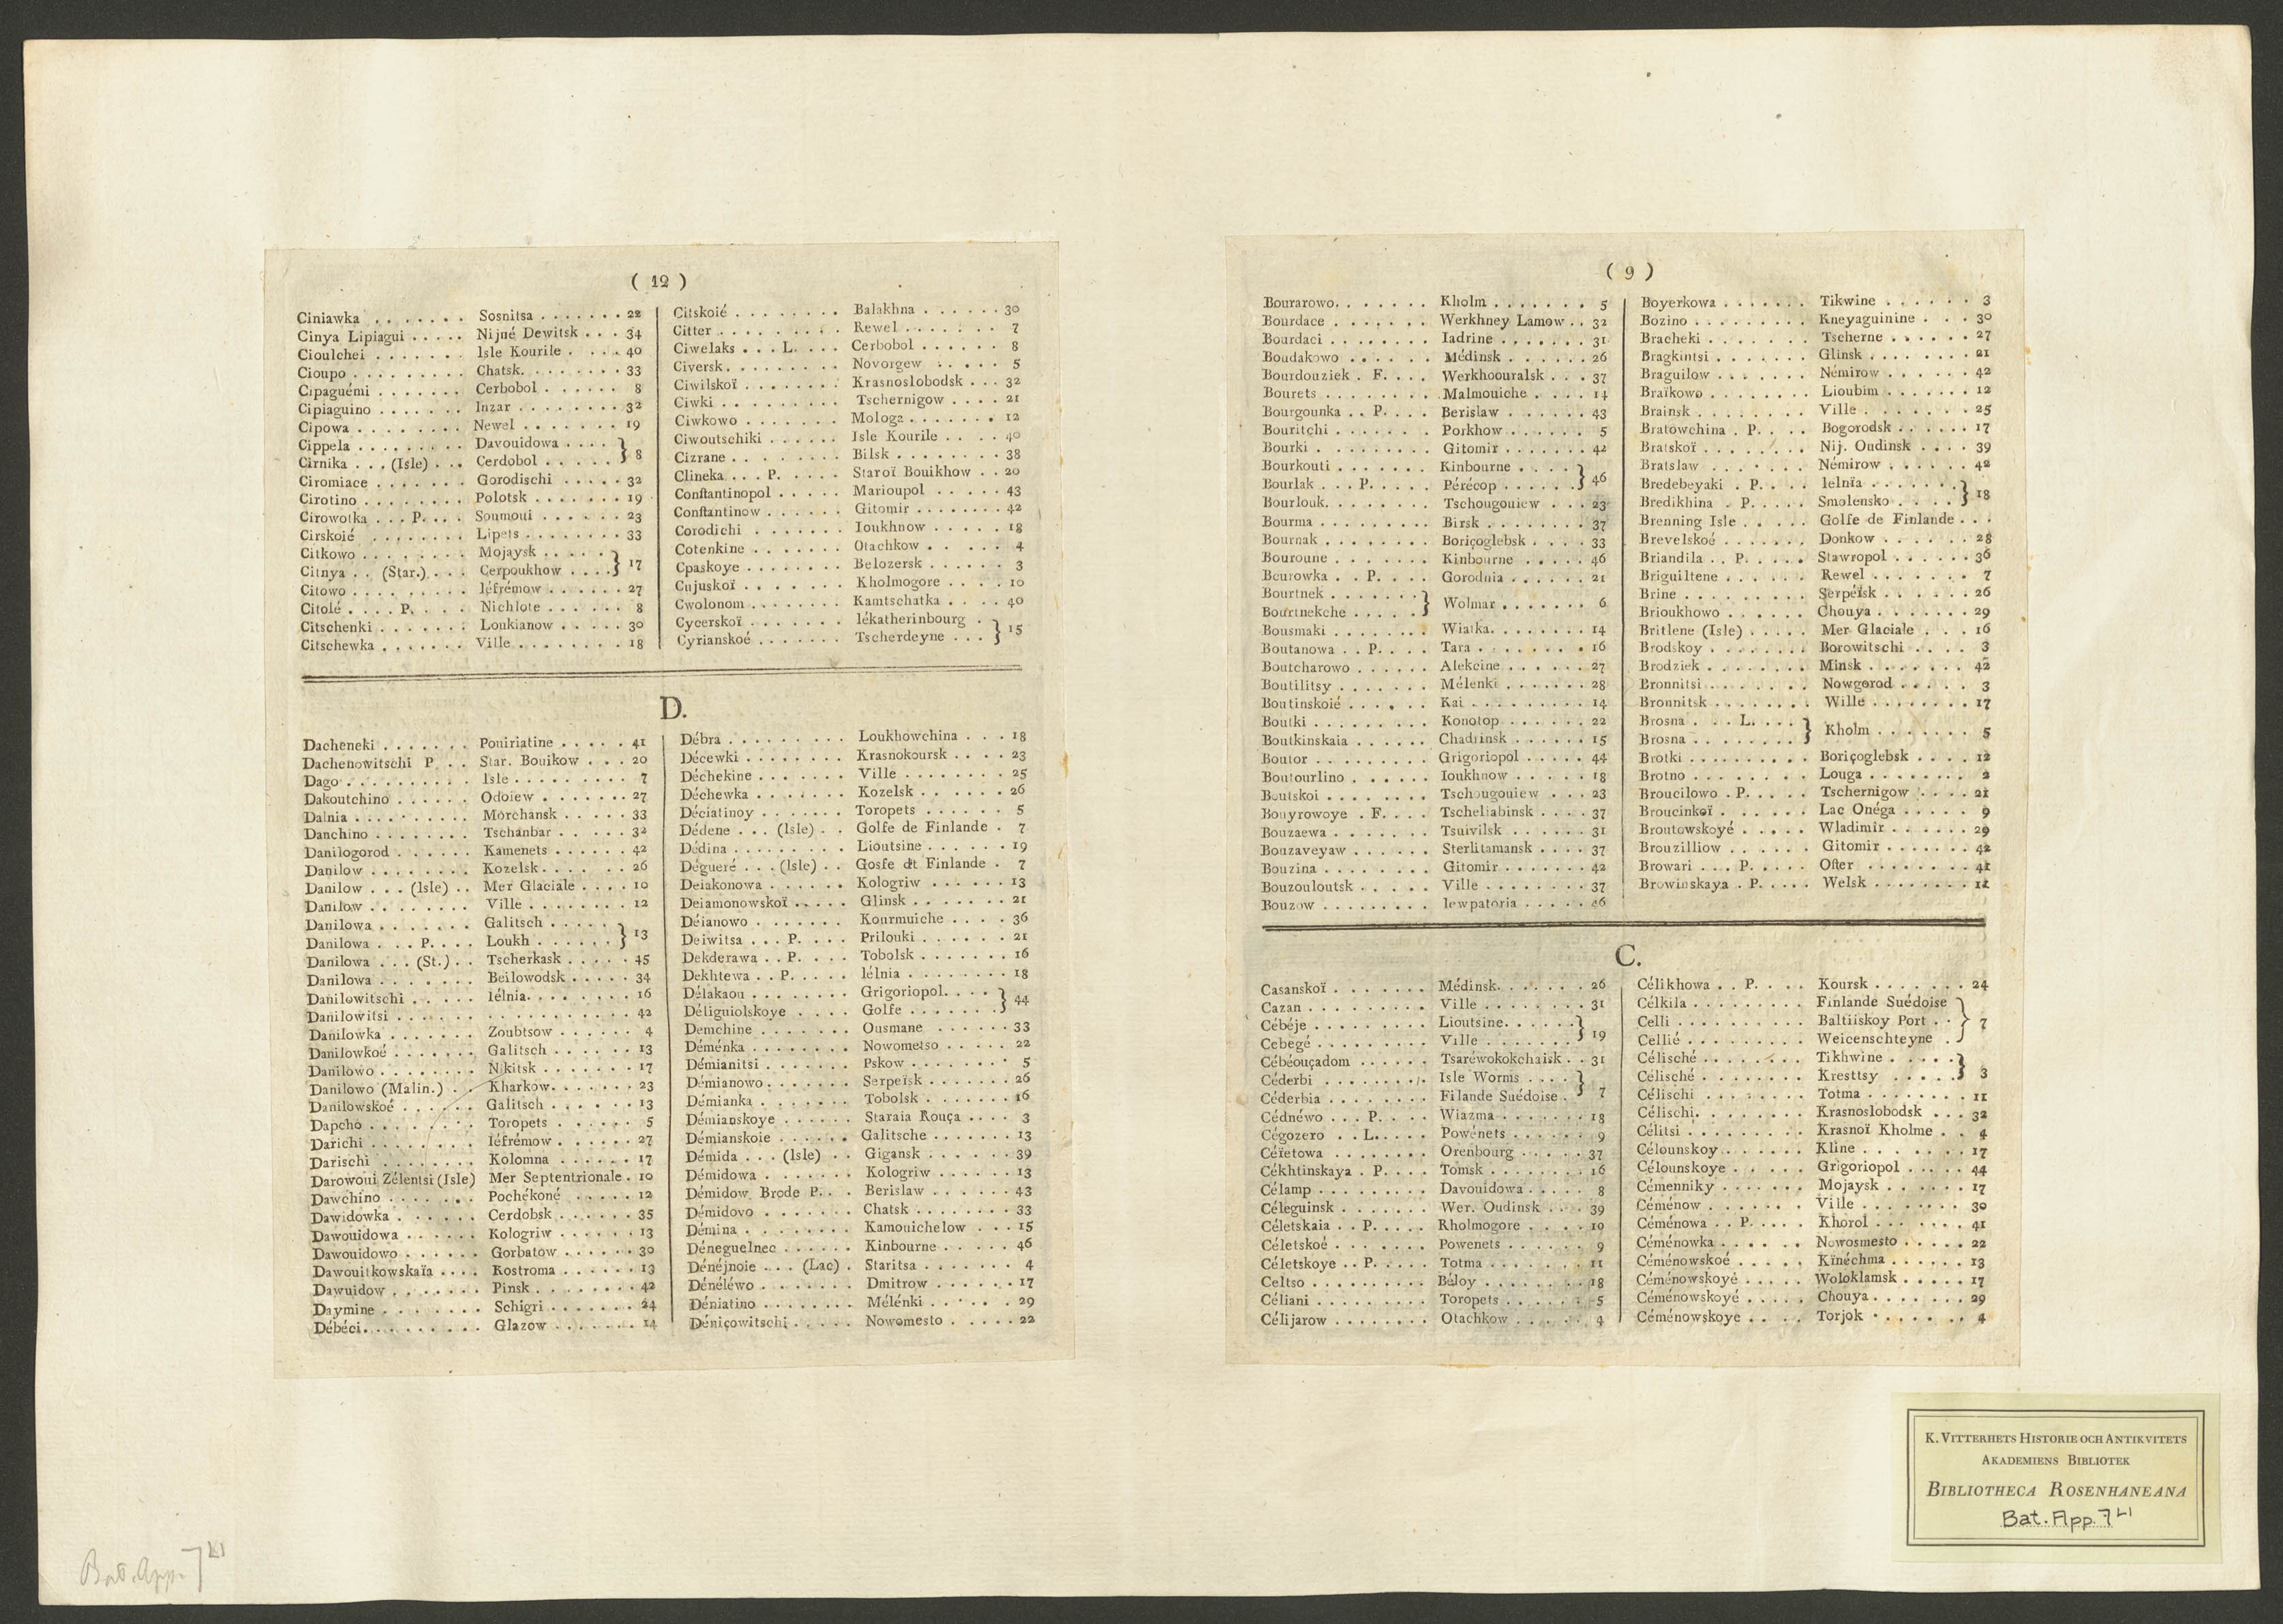 ( 12 )
Ciniawka . . . . . . . Sosnitsa . . . . . . . 22
Cinya Lipiagui . . . . . Nijné Dewitsk . . . 34
Cioulchei . . . . . . . Isle Kourile . . . . 40
Cioupo . . . . . . . . . Chatsk. . . . . . . . 33
Cipaguémi . . . . . . . Cerbobol . . . . . . 8
Cipiaguino . . . . . . . Inzar . . . . . . . . 32
Cipowa . . . . . . . . Newel . . . . . . . 19
Cippela . . . . . . . . . Davouidowa . . . . } 8
Cirnika . . . (Isle) . . . Cerdobol . . . . . .
Ciromiace . . . . . . . Gorodischi . . . . . 32
Cirotino . . . . . . . . Polotsk . . . . . . . 19
Cirowotka . . . P. . . . Soumoui . . . . . . 23
Cirskoié . . . . . . . . Lipets . . . . . . . . 33
Citkowo . . . . . . . . Mojaysk . . . . . } 17
Citnya . . (Star.) . . . Cerpoukhow . . . .
Citowo . . . . . . . . . Iéfrémow . . . . . . 27
Citolé . . . . P. . . . . Nichlote . . . . . . 8
Citschenki . . . . . . . Loukianow . . . . . 30
Citschewka . . . . . . . Ville . . . . . . . . 18
Citskoié . . . . . . . . Balakhna . . . . . . 30
Citter . . . . . . . . . Rewel . . . . . . . 7
Ciwelaks . . . L. . . . Cerbobol . . . . . . 8
Civersk. . . . . . . . . Novorgew . . . . . 5
Ciwilskoï . . . . . . . . Krasnoslobodsk . . . 32
Ciwki . . . . . . . . . Tschernigow . . . . 21
Ciwkowo . . . . . . . Mologa . . . . . . . 12
Ciwoutschiki . . . . . . Isle Kourile . . . . 40
Cizrane . . . . . . . . Bilsk . . . . . . . . 38
Clineka . . . P. . . . . Staroï Bouikhow . . 20
Constantinopol . . . . . Marioupol . . . . . 43
Constantinow . . . . . . Gitomir . . . . . . . . 42
Corodichi . . . . . . . Ioukhnow . . . . . 18
Cotenkine . . . . . . . Otachkow . . . . . 4
Cpaskoye . . . . . . . Belozersk . . . . . . 3
Cujuskoï . . . . . . . Kholmogore . . . . 10
Cwolonom . . . . . . . Kamtschatka . . . . 40
Cycerskoï . . . . . . . Iékatherinbourg . } 15
Cyrianskoé . . . . . . . Tscherdeyne . . .
D.
Dacheneki . . . . . . . Pouiriatine . . . . . 41
Dachenowitschi P . . . Star. Bouikow . . . 20
Dago . . . . . . . . . . Isle . . . . . . . . . 7
Dakoutchino . . . . . . Odoiew . . . . . . . 27
Dalnia . . . . . . . . . Morchansk . . . . . 33
Danchino . . . . . . . . Tschanbar . . . . . 32
Danilogorod . . . . . . Kamenets . . . . . . 42
Danilow . . . . . . . . Kozelsk . . . . . . 26
Danilow . . . (Isle) . . Mer Glaciale . . . . 10
Danilow . . . . . . . . Ville . . . . . . . . 12
Danilowa . . . . . . . Galitsch . . . . . } 13
Danilowa . . . P. . . . Loukh . . . . . .
Danilowa . . . (St.) . . Tscherkask . . . . . 45
Danilowa . . . . . . . Beilowodsk . . . . . 34
Danilowitschi . . . . . Iélnia. . . . . . . . 16
Danilowitsi . . . . . . . . . . . . . . . . 42
Danilowka . . . . . . . Zoubtsow . . . . . . 4
Danilowkoé . . . . . . Galitsch . . . . . . 13
Danilowo . . . . . . . . Nikitsk . . . . . . . 17
Danilowo (Malin.) . . Kharkow. . . . . . . 23
Danilowskoé . . . . . . Galitsch . . . . . . 13
Dapcho . . . . . . . . Toropets . . . . . . 5
Darichi . . . . . . . . Iéfrémow . . . . . . 27
Darischi . . . . . . . . Kolomna . . . . . . 17
Darowoui Zélentsi (Isle) Mer Septentrionale . 10
Dawchino . . . . . . . Pochékoné . . . . . 12
Dawidowka . . . . . . Cerdobsk . . . . . . 35
Dawouidowa . . . . . . Kologriw . . . . . . 13
Dawouidowo . . . . . . Gorbatow . . . . . . 30
Dawouitkowskaïa . . . . Kostroma . . . . . . 13
Dawuidow . . . . . . . Pinsk . . . . . . . . 42
Daymine . . . . . . . . Schigri . . . . . . . 24
Débéci. . . . . . . . . Glazow . . . . . . . 14
Débra . . . . . . . . . Loukhowchina . . . 18
Décewki . . . . . . . . Krasnokoursk . . . . 23
Déchekine . . . . . . . Ville . . . . . . . . 25
Déchewka . . . . . . . Kozelsk . . . . . . 26
Déciatinoy . . . . . . . Toropets . . . . . . 5
Dédene . . . (Isle) . . Golfe de Finlande . 7
Dédina . . . . . . . . . Lioutsine . . . . . . 19
Dégueré . . . (Isle) . . Gosfe dt Finlande . 7
Deiakonowa . . . . . . Kologriw . . . . . . 13
Deiamonowskoï . . . . . Glinsk . . . . . . . 21
Déianowo . . . . . . . Kourmuiche . . . . 36
Deiwitsa . . . P. . . . Prilouki . . . . . . 21
Dekderawa . . P. . . . Tobolsk . . . . . . . 16
Dekhtewa . . P. . . . . Iélnia . . . . . . . . 18
Délakaou . . . . . . . . Grigoriopol. . . . } 44
Déliguiolskoye . . . . Golfe . . . . . . .
Demchine . . . . . . . Ousmane . . . . . . 33
Déménka . . . . . . . . Nowometso . . . . . 22
Démianitsi . . . . . . . Pskow . . . . . . . 5
Démianowo . . . . . . . Serpeïsk . . . . . . . 26
Démianka . . . . . . . Tobolsk . . . . . . . 16
Démianskoye . . . . . . Staraia Rouça . . . . 3
Démianskoie . . . . . . Galitsche . . . . . . . 13
Démida . . . (Isle) . . Gigansk . . . . . . . 39
Démidowa . . . . . . . Kologriw . . . . . . 13
Démidow Brode P. . . Berislaw . . . . . . 43
Démidovo . . . . . . . Chatsk . . . . . . . . 33
Démina . . . . . . . . Kamouichelow . . . 15
Déneguelnec . . . . . . Kinbourne . . . . . 46
Dénéjnoie . . . (Lac) . Staritsa . . . . . . . 4
Dénéléwo . . . . . . . Dmitrow . . . . . . 17
Déniatino . . . . . . . . Mélénki . . . . . . 29
Déniçowitschi . . . . . Nowomesto . . . . . 22
( 9 )
Bourarowo. . . . . . . Kholm . . . . . . . 5
Bourdace . . . . . . . Werkhney Lamow . . 32
Bourdaci . . . . . . . . Iadrine . . . . . . . 31
Boudakowo . . . . . . Médinsk . . . . . . 26
Bourdouziek . F. . . . Werkhoouralsk . . . 37
Bourets . . . . . . . . Malmouiche . . . . 14
Bourgounka . . P. . . . Berislaw . . . . . . 43
Bouritchi . . . . . . . Porkhow . . . . . . 5
Bourki . . . . . . . . . Gitomir . . . . . . . 42
Bourkouti . . . . . . . Kinbourne . . . . } 46
Bourlak . . . P. . . . . Pérécop . . . . . .
Bourlouk. . . . . . . . Tschougouiew . . . 23
Bourma . . . . . . . . Birsk . . . . . . . . 37
Bournak . . . . . . . . Boriçoglebsk . . . . 33
Bouroune . . . . . . . Kinbourne . . . . . 46
Bourowka . . P. . . . Gorodnia . . . . . . 21
Bourtnek . . . . . . . } Wolmar . . . . . . . 6
Bourtnekche . . . . .
Bousmaki . . . . . . . . Wiatka. . . . . . . . 14
Boutanowa . . P. . . . Tara . . . . . . . . 16
Boutcharowo . . . . . . Alekcine . . . . . . . 27
Boutilitsy . . . . . . . Mélenki . . . . . . . 28
Boutinskoié . . . . . . Kai . . . . . . . . . 14
Boutki . . . . . . . . . Konotop . . . . . . 22
Boutkinskaia . . . . . . Chadrinsk . . . . . . 15
Boutor . . . . . . . . . Grigoriopol . . . . . 44
Boutourlino . . . . . . Ioukhnow . . . . . 18
Boutskoi . . . . . . . . Tschougouiew . . . 23
Bouyrowoye . F. . . . Tscheliabinsk . . . . 37
Bouzaewa . . . . . . . Tsuivilsk . . . . . . 31
Bouzaveyaw . . . . . . Sterlitamansk . . . . 37
Bouzina . . . . . . . . Gitomir . . . . . . . 42
Bouzouloutsk . . . . . Ville . . . . . . . . 37
Bouzow . . . . . . . . . Iewpatoria . . . . . 46
Boyerkowa . . . . . . . Tikwine . . . . . . 3
Bozino . . . . . . . . . Kneyaguinine . . . 30
Bracheki . . . . . . . . Tscherne . . . . . . 27
Bragkintsi . . . . . . . Glinsk . . . . . . . 21
Braguilow . . . . . . . Némirow . . . . . . 42
Braïkowo . . . . . . . . Lioubim . . . . . . . 12
Brainsk . . . . . . . . Ville . . . . . . . 25
Bratowchina . P. . . . Bogorodsk . . . . . . 17
Bratskoï . . . . . . . . Nij. Oudinsk . . . . 39
Bratslaw . . . . . . . Némirow . . . . . . 42
Bredebeyaki . P. . . . Ielnïa . . . . . . . } 18
Bredikhina . P. . . . . Smolensko . . . .
Brenning Isle . . . . . Golfe de Finlande . . .
Brevelskoé . . . . . . . Donkow . . . . . . 28
Briandila . . P. . . . . Stawropol . . . . . . 36
Briguiltene . . . . . . Rewel . . . . . . . 7
Brine . . . . . . . . . Serpéïsk . . . . . . 26
Brioukhowo . . . . . . Chouya . . . . . . . 29
Britlene (Isle) . . . . . Mer Glaciale . . . 16
Brodskoy . . . . . . . . Borowitschi . . . . 3
Brodziek . . . . . . . . Minsk . . . . . . . 42
Bronnitsi . . . . . . . . Nowgorod . . . . . 3
Bronnitsk . . . . . . . . Wille . . . . . . . . 17
Brosna . . . L. . . . } Kholm . . . . . . . 5
Brosna . . . . . . . .
Brotki . . . . . . . . . Boriçoglebsk . . . . 12
Brotno . . . . . . . . . Louga . . . . . . . . 2
Broucilowo . P. . . . . Tschernigow . . . . 21
Broucinkoï . . . . . . . Lac Onéga . . . . . 9
Broutowskoyé . . . . . Wladimir . . . . . . 29
Brouzilliow . . . . . . Gitomir . . . . . . . 42
Browari . . . P. . . . . Oster . . . . . . . . 41
Browinskaya . P. . . . . Welsk . . . . . . . .
C.
Casanskoï . . . . . . . Médinsk. . . . . . . 26
Cazan . . . . . . . . . Ville . . . . . . . . 31
Cébéje . . . . . . . . . Lioutsine. . . . . . } 19
Cebegé . . . . . . . . . Ville . . . . . . .
Cébéouçadom . . . . . . Tsaréwokokchaisk . . 31
Céderbi . . . . . . . . Isle Worms . . . . } 7
Céderbia . . . . . . . . Filande Suédoise .
Cédnéwo . . . P. . . . Wiazma . . . . . . . 18
Cégozero . . L. . . . . Powénets . . . . . . 9
Céïetowa . . . . . . . . Orenbourg . . . . . 37
Cékhtinskaya . P. . . . Tomsk . . . . . . . 16
Célamp . . . . . . . . . Davouidowa . . . . . 8
Céleguinsk . . . . . . . Wer. Oudinsk . . . 39
Céletskaia . . P. . . . . Rholmogore . . . . 10
Céletskoé . . . . . . . Powenets . . . . . . 9
Céletskoye . . P. . . . . Totma . . . . . . . . 11
Celtso . . . . . . . . . Béloy . . . . . . . . 18
Céliani . . . . . . . . . Toropets . . . . . . 5
Célijarow . . . . . . . . Otachkow . . . . . . 4
Célikhowa . . P. . . . Koursk . . . . . . . 24
Célkila . . . . . . . . . Finlande Suédoise } 7
Celli . . . . . . . . . . Baltiiskoy Port . .
Cellié . . . . . . . . . Weicenschteyne .
Célisché . . . . . . . . Tikhwine . . . . . } 3
Célisché . . . . . . . . Kresttsy . . . . .
Célischi . . . . . . . . Totma . . . . . . . . 11
Célischi. . . . . . . . Krasnoslobodsk . . . 32
Célitsi . . . . . . . . . Krasnoï Kholme . . 4
Célounskoy . . . . . . . Kline . . . . . . . 17
Célounskoye . . . . . . Grigoriopol . . . . . 44
Cémenniky . . . . . . . Mojaysk . . . . . . 17
Céménow . . . . . . . . Ville . . . . . . . . 30
Céménowa . . P. . . . . Khorol . . . . . . . 41
Céménowka . . . . . . Nowosmesto . . . . . 22
Céménowskoé . . . . . Kïnéchma . . . . . . 13
Céménowskoyé . . . . . Woloklamsk . . . . . 17
Céménowskoyé . . . . . Chouya . . . . . . . 29
Céménowskoye . . . . Torjok . . . . . . . 4
K. VITTERHETS HISTORIE OCH ANTIKVITETS
AKADEMIENS BIBLIOTEK
BIBLIOTHECA ROSENHANEANA
Bat. App. 7 LI
Bat. App. 7 LI